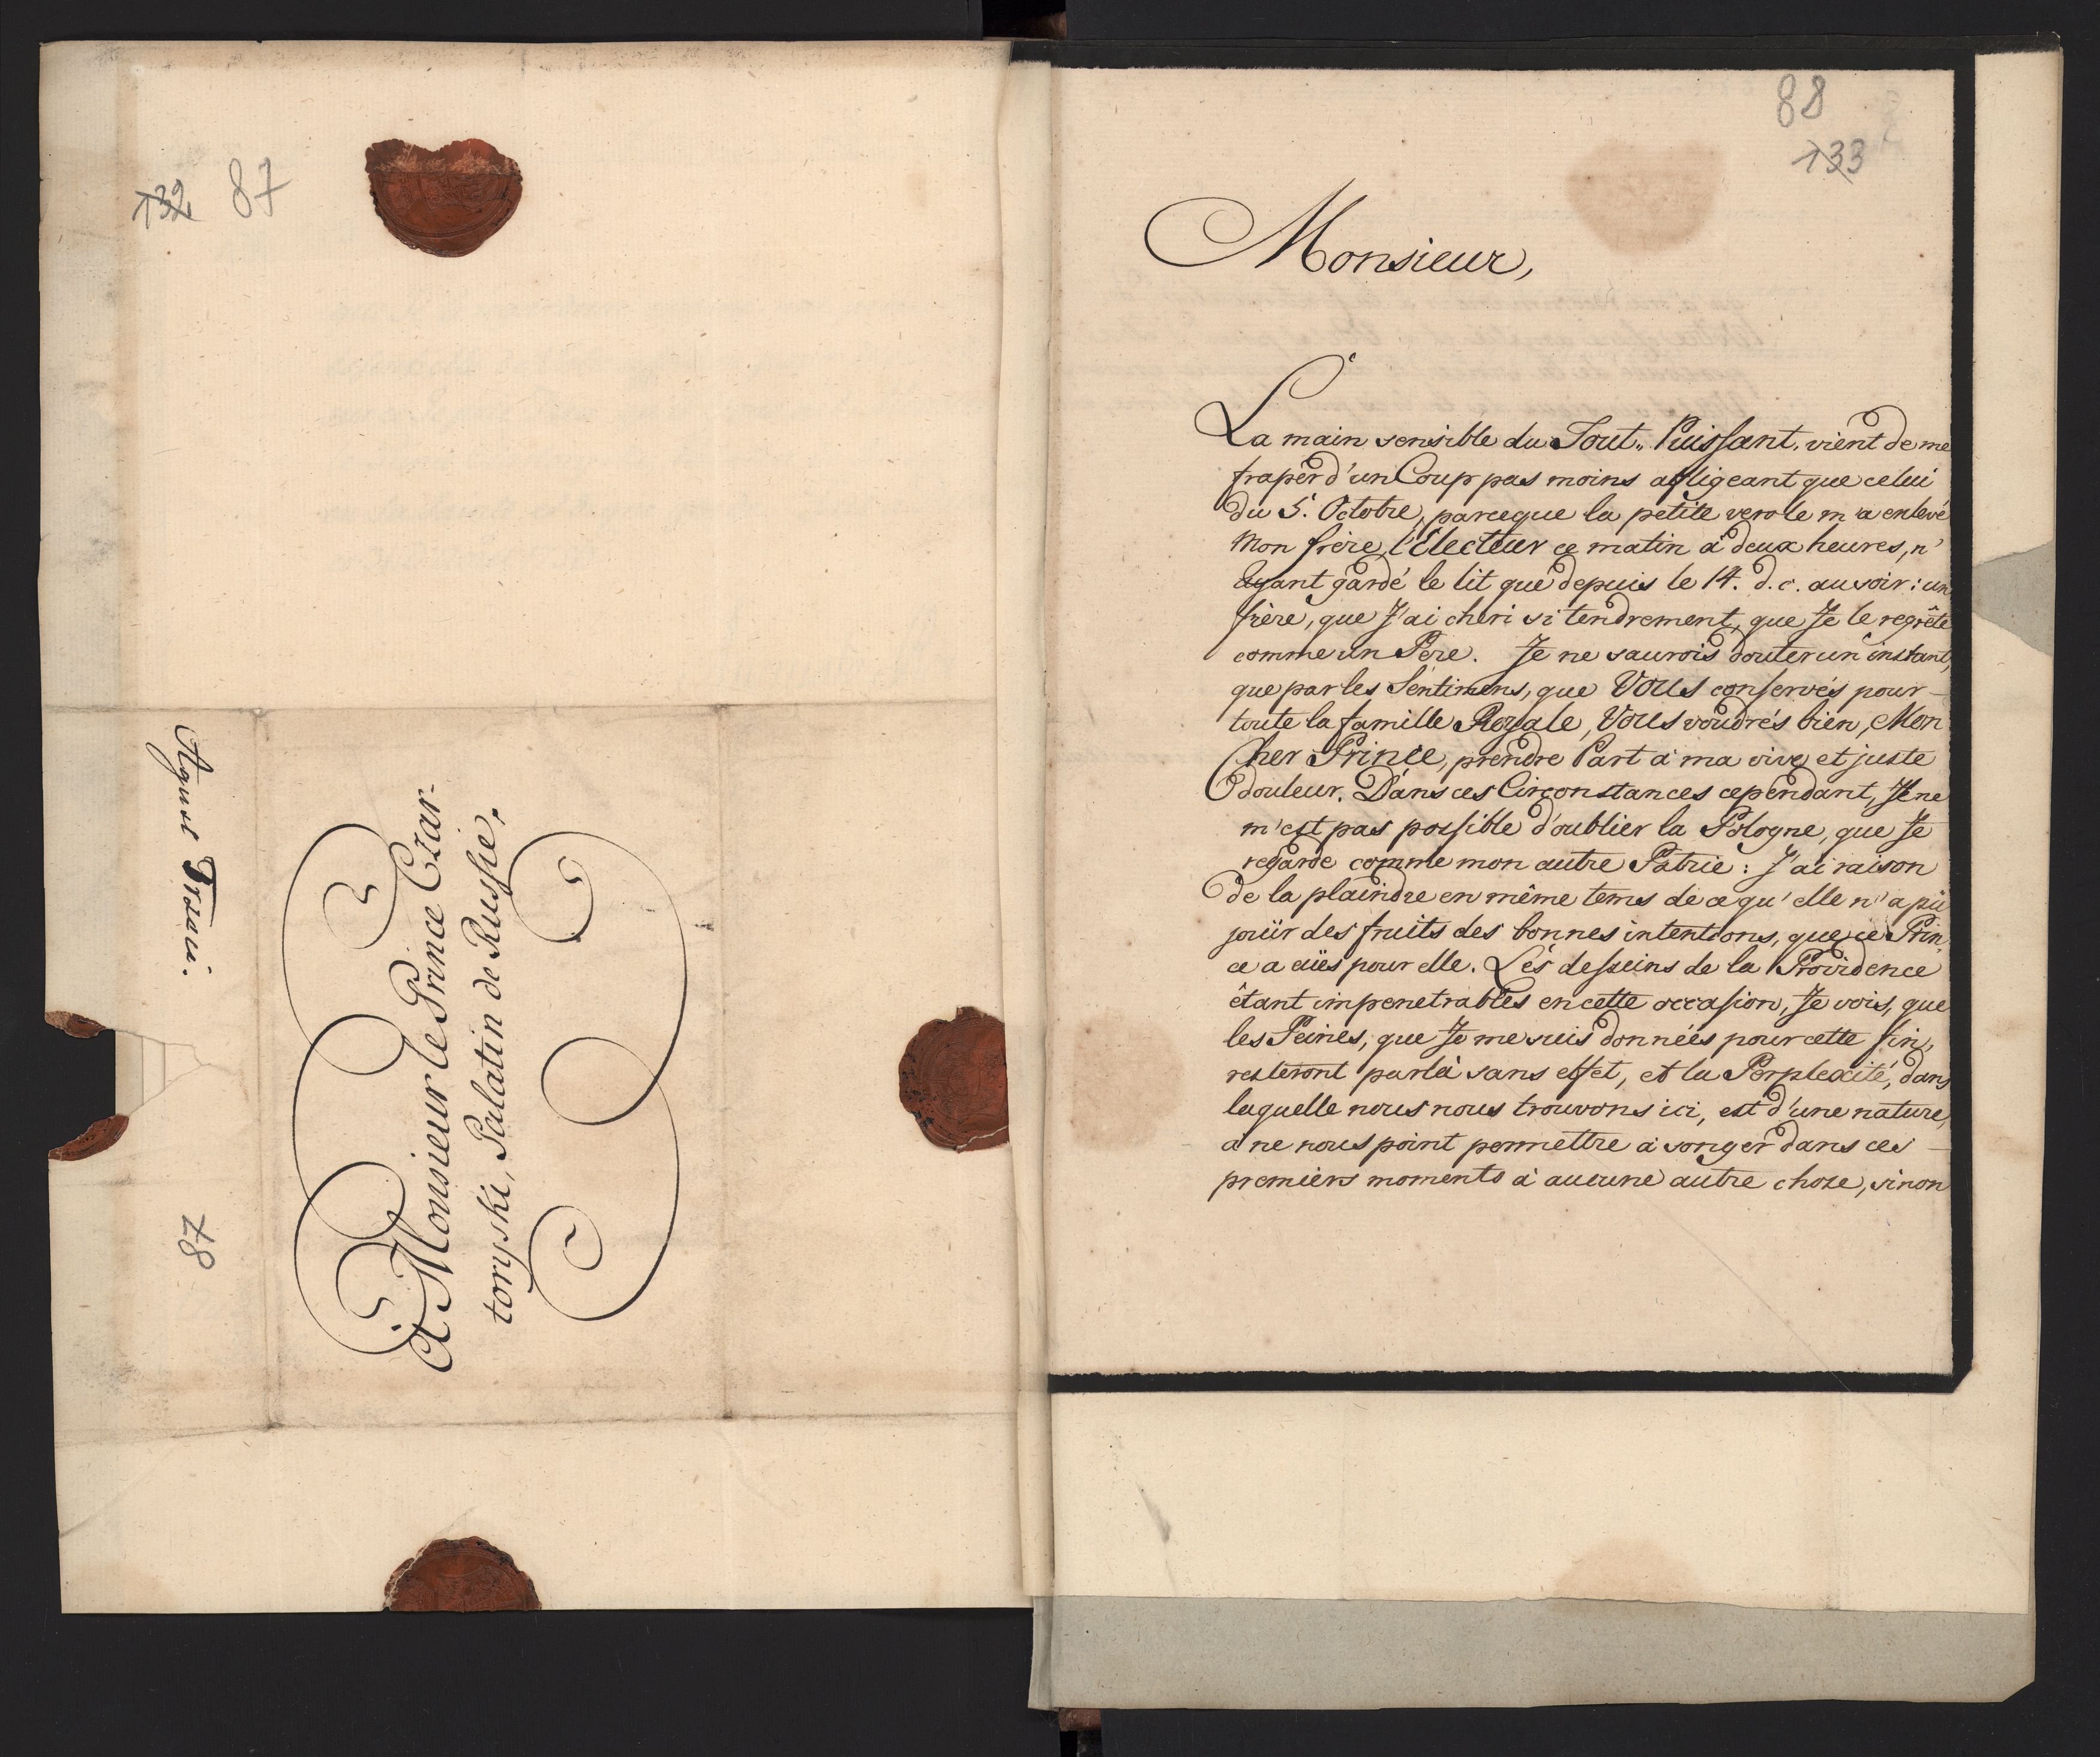 132 87
August Trzeci.
87
A Monsieur le Prince Czar-
toryski, Palatin de Russie.
88
133
Monsieur,
La main sensible du Tout„ Puissant, vient de me
fraper d'un Coup pas moins afligeant que celui
du 5. Octobre, parceque la petite verole m'a enlevé
Mon frère l'Electeur ce matin à deux heures, n'
ayant gardé le lit que depuis le 14. d. c. au soir: un
frère, que J'ai cheri si tendrement, que Je le regrête
comme un Père. Je ne saurois douter un instant,
que par les Sentimens, que Vous conservés pour
toute la famille Royale, Vous voudrés bien, Mon
Cher Prince, prendre Part à ma vive et juste
douleur. Dans ces Circonstances cependant, Il ne
m'est pas possible d'oublier la Pologne, que Je
regarde comme mon autre Patrie: J'ai raison
de la plaindre en même tems de ce qu'elle n'a pû
joüir des fruits des bonnes intentions, que ce Prin
ce a eües pour elle. Les desseins de la Providence
étant impenetrables en cette occasion, Je vois, que
les Peines, que Je me suis données pour cette fin,
resteront parlà sans effet, et la Perplexité, dans
laquelle nous nous trouvons ici, est d'une nature,
à ne nous point permettre à songer dans ces
premiers moments à aucune autre chose, sinon